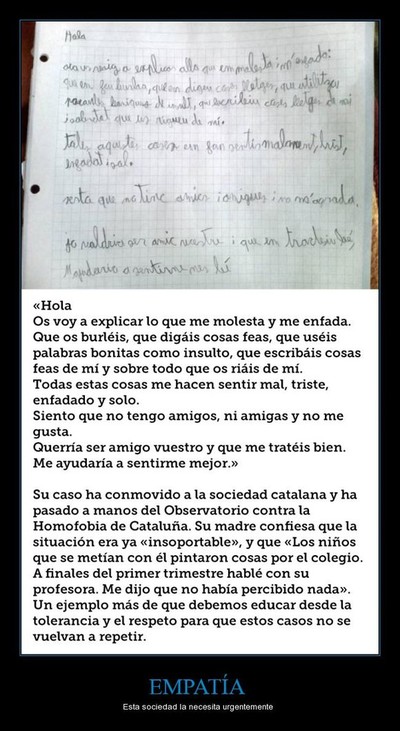 Hola
vaig a explicar allo que em molesta i m'enfada:
que em digueu coses lletges, que utilitzeu
boniques d'insult, que escribiu coses lletges de mi
i sobretot que us rigueu de mi.
totes aquestes coses em fan sentir malament, trist,
enfadat i sol.
que no tinc amics i amigues i no m'agrada.
jo voldria ser amic vostre i que em tracteu bé
M'ajudaria a sentirme mes bé
«Hola
Os voy a explicar lo que me molesta y me enfada.
Que os burléis, que digáis cosas feas, que uséis
palabras bonitas como insulto, que escribáis cosas
feas de mí y sobre todo que os riáis de mí.
Todas estas cosas me hacen sentir mal, triste,
enfadado y solo.
Siento que no tengo amigos, ni amigas y no me
gusta.
Querría ser amigo vuestro y que me tratéis bien.
Me ayudaría a sentirme mejor.»
Su caso ha conmovido a la sociedad catalana y ha
pasado a manos del Observatorio contra la
Homofobia de Cataluña. Su madre confiesa que la
situación era ya «insoportable», y que «Los niños
que se metían con él pintaron cosas por el colegio.
A finales del primer trimestre hablé con su
profesora. Me dijo que no había percibido nada».
Un ejemplo más de que debemos educar desde la
tolerancia y el respeto para que estos casos no se
vuelvan a repetir.
EMPATÍA
Esta sociedad la necesita urgentemente